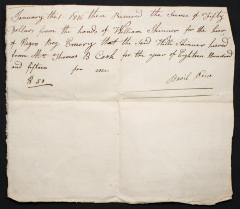 January the 1 1816 then Received the Sume of Fifty
Dollars from the hands of William Skinner for the hire
of Negro Boy Emory that the said Wm Skinner hired
from Mrs Thomas B Cook for the year of Eighteen Hundred
and fifteen for me
$50